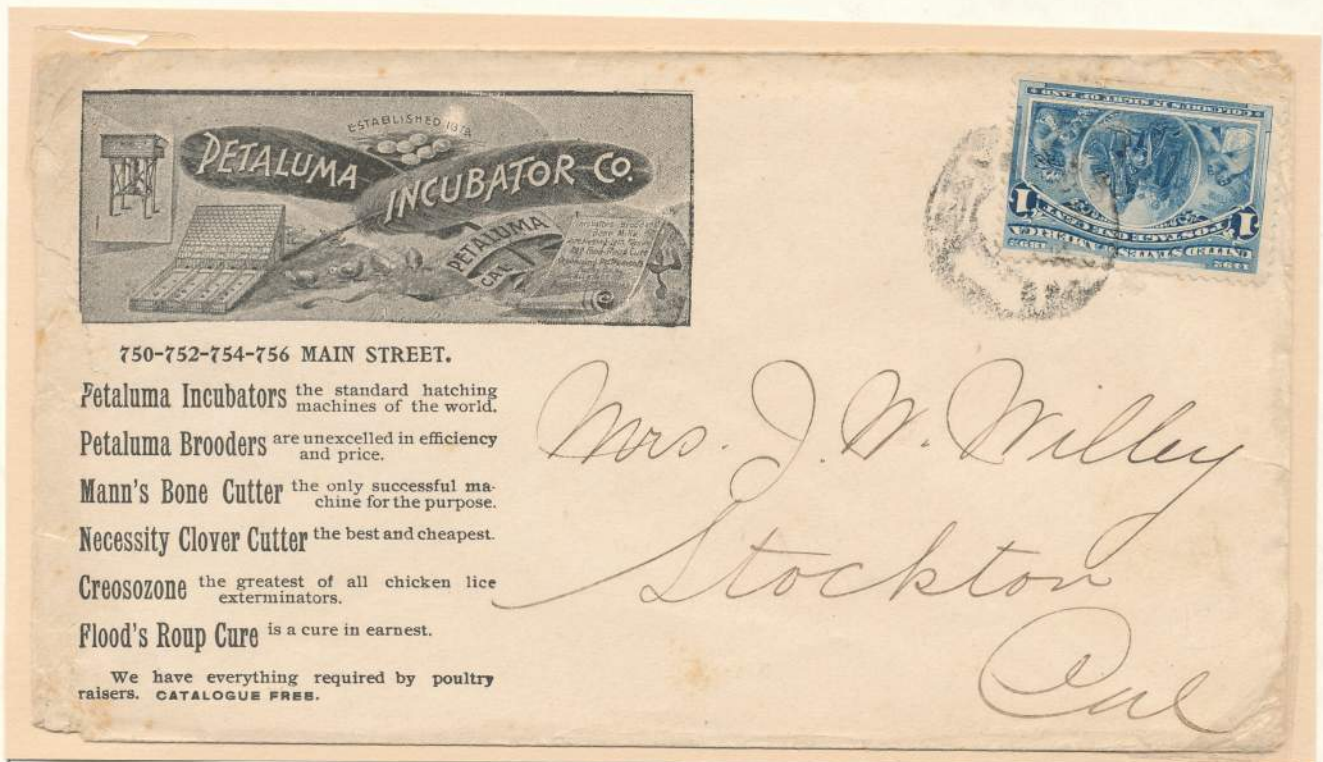 ESTABLISHED 1878
PETALUMA
INCUBATOR CO.
PETALUMA
CAL.
750-752-754-756 MAIN STREET.
Petaluma Incubators the standard hatching
machines of the world.
Petaluma Brooders are unexcelled in efficiency
and price.
Mann's Bone Cutter the only successful ma-
chine for the purpose.
Necessity Clover Cutter the best and cheapest.
Creosozone the greatest of all chicken lice
exterminators.
Flood's Roup Cure is a cure in earnest.
We have everything required by poultry
raisers. CATALOGUE FREE.
1492 1892
UNITED STATES OF AMERICA
POSTAGE ONE CENT
1 1
COLUMBUS IN SIGHT OF LAND
Mrs. J. W. Willey
Stockton
Cal